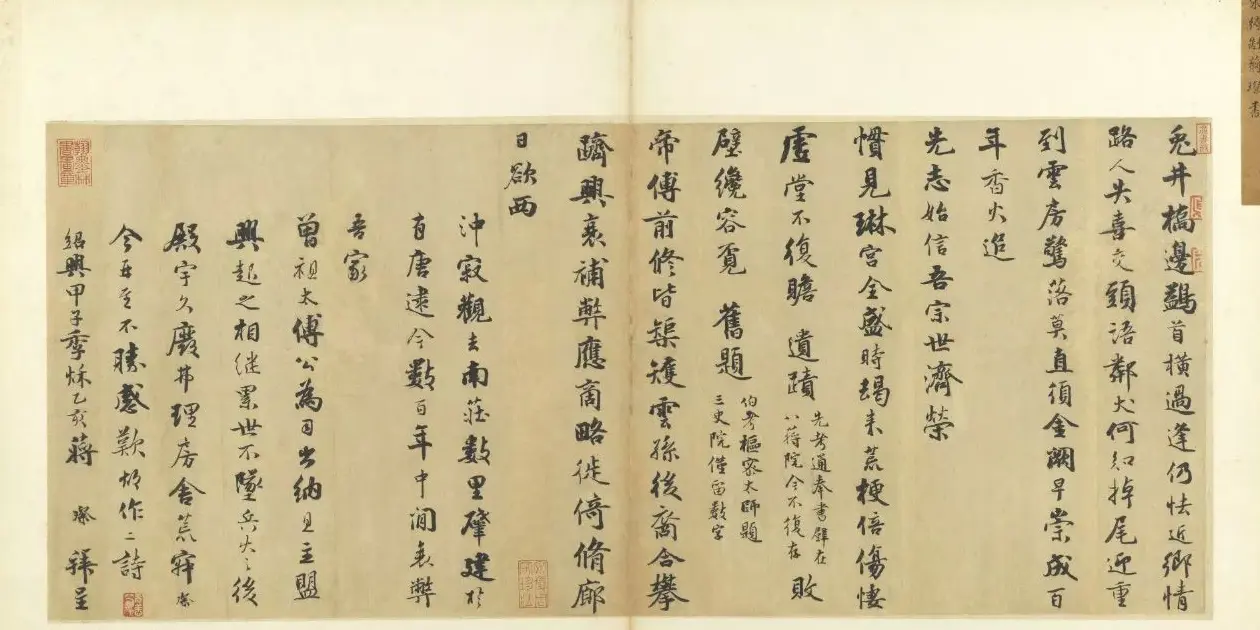 兎井橋邊鷁首橫過逢仍怯近鄉情
路人失喜交頭語鄰犬何知掉尾迎重
到雲房驚落莫直須金闕早崇成百
年香火追
先志始信吾宗世濟榮
慣見琳宮全盛時朅来荒梗倍傷悽
虛堂不復瞻 遺蹟 先考通奉書壁在
八蒋院今不復存 敗
壁纔容覔 舊題 伯考樞密太師題
三史院僅留數字
帝傅前修皆榘矱雲孫後裔合攀
躋興衰補弊應商略徙倚脩廊
日欲西
沖寂觀去南莊數里肇建於
有唐逮今數百年中間衰弊
吾家
曾祖太傅公為司出納且主盟
興起之相继累世不墜兵火之後
殿宇久廢弗理房舍荒寂璨
今再至不勝感歎姑作二詩
紹興甲子季秌乙亥蔣 璨 拜呈